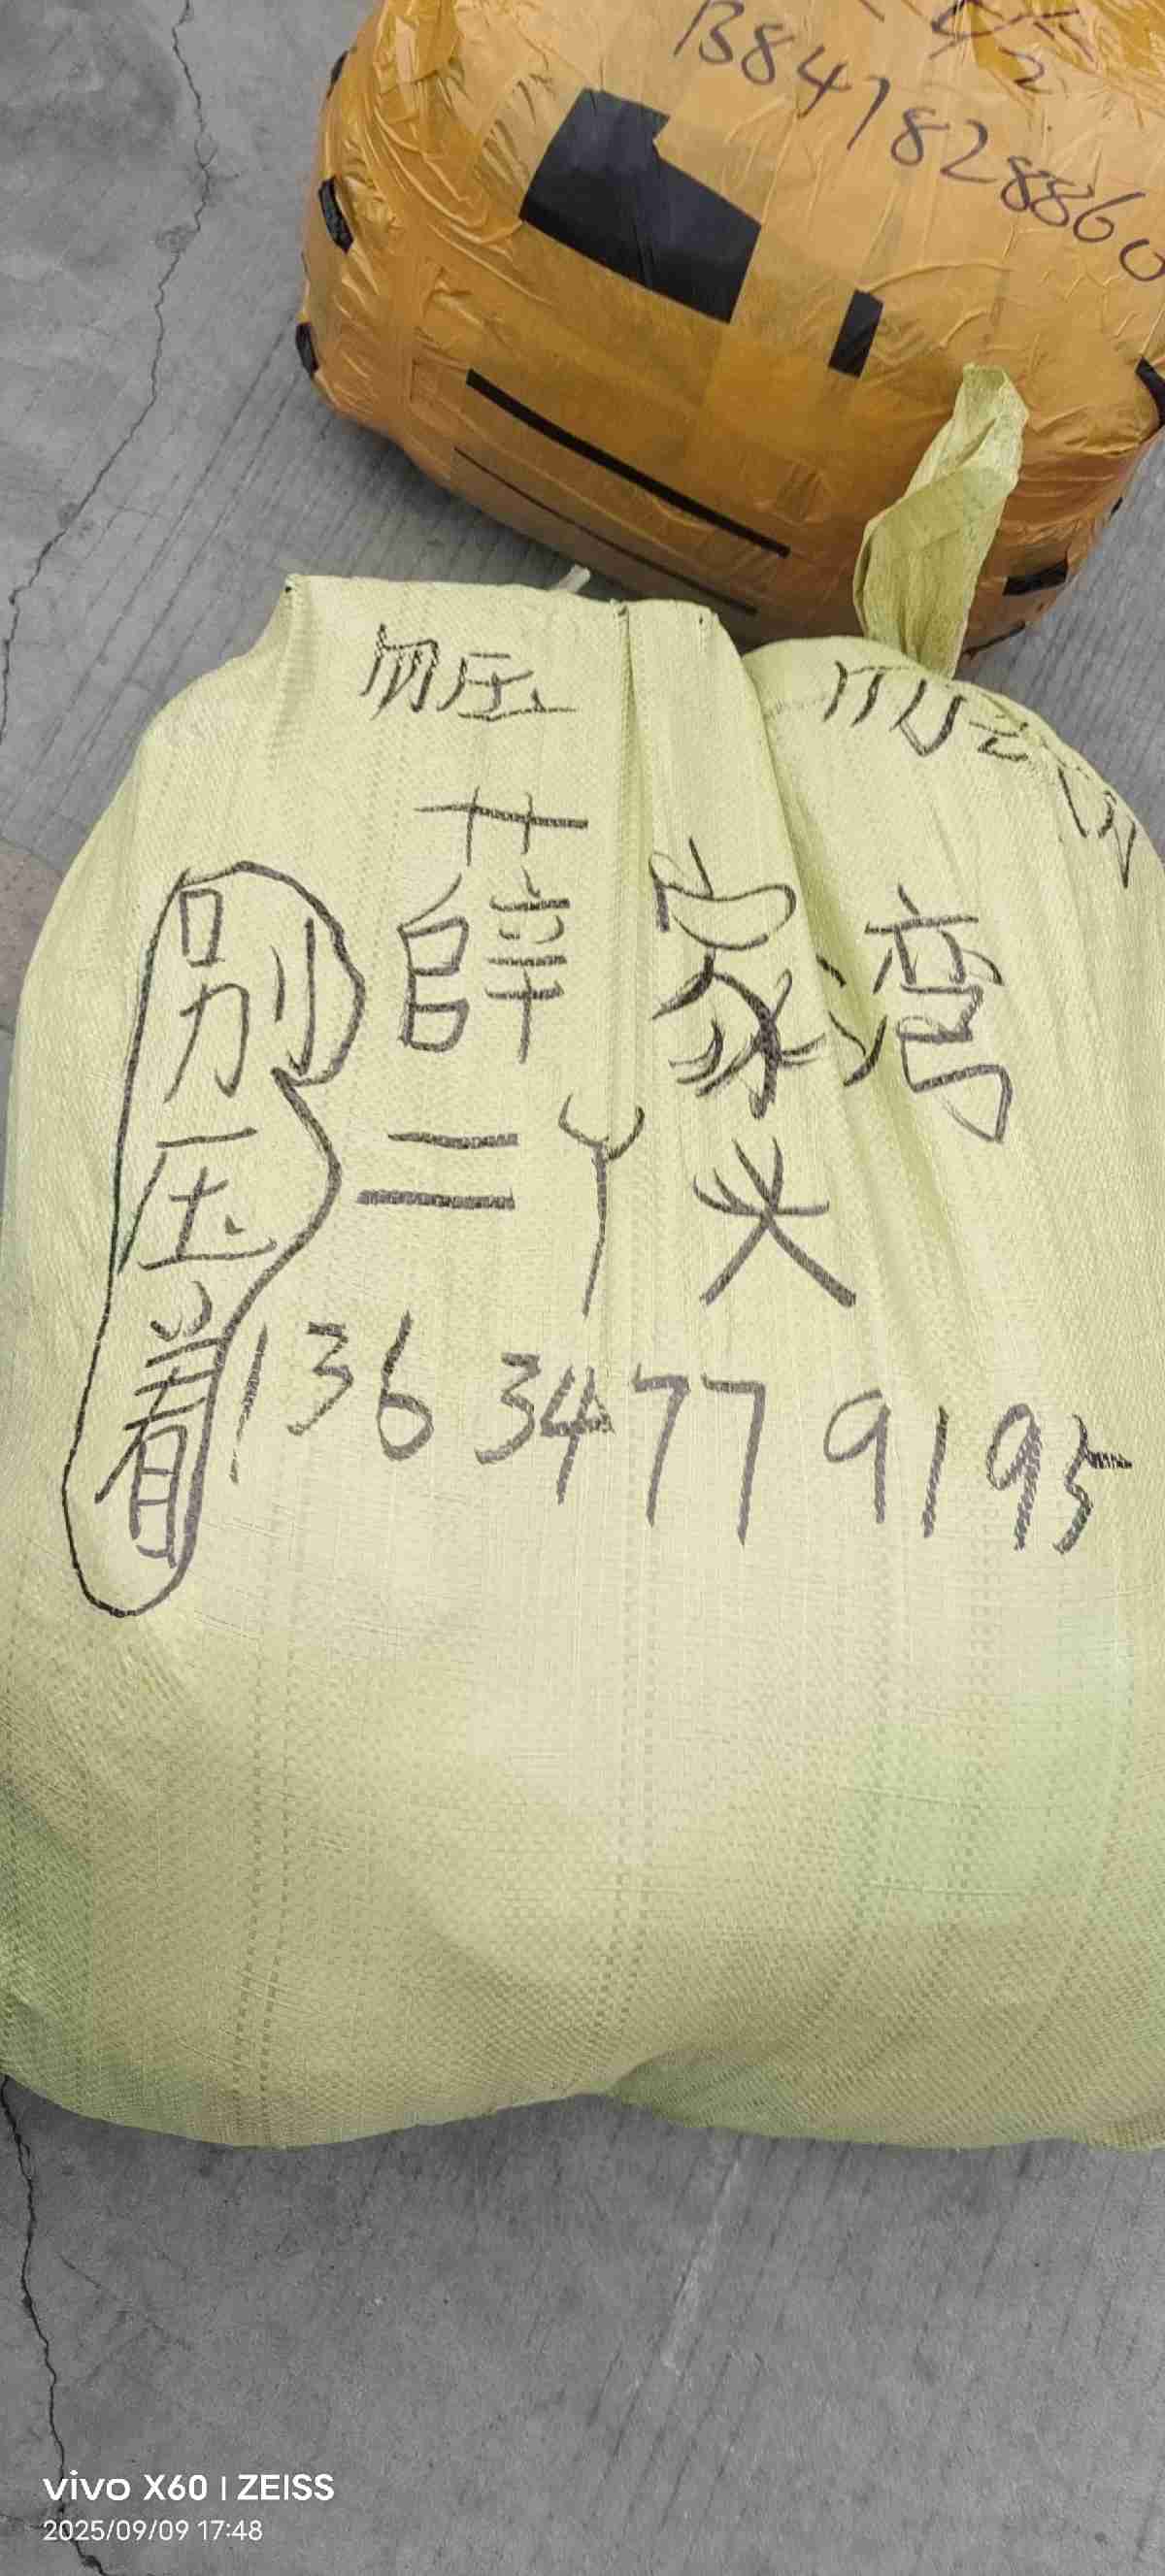 13847828860
勿压
薛家湾
别压着
二丫头
13634779195
vivo X60 | ZEISS
2025/09/09 17:48